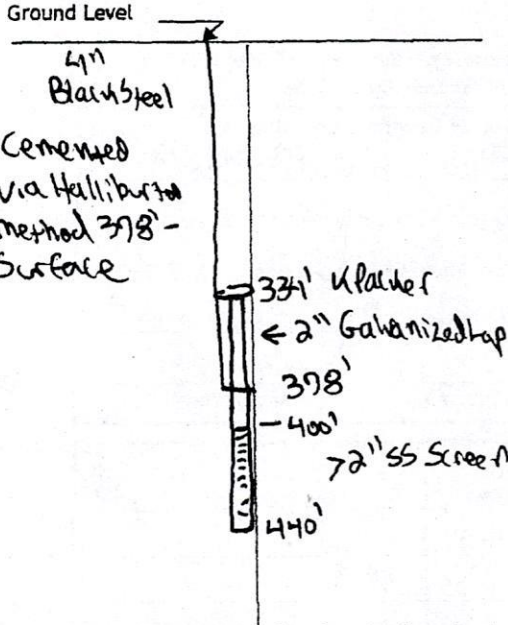 Ground Level
4"
Black Steel
Cemented
via Halliburton
method 378'-
Surface
334' K packer
← 2" Galvanized Lap
378'
- 400'
>2" SS Screen
440'